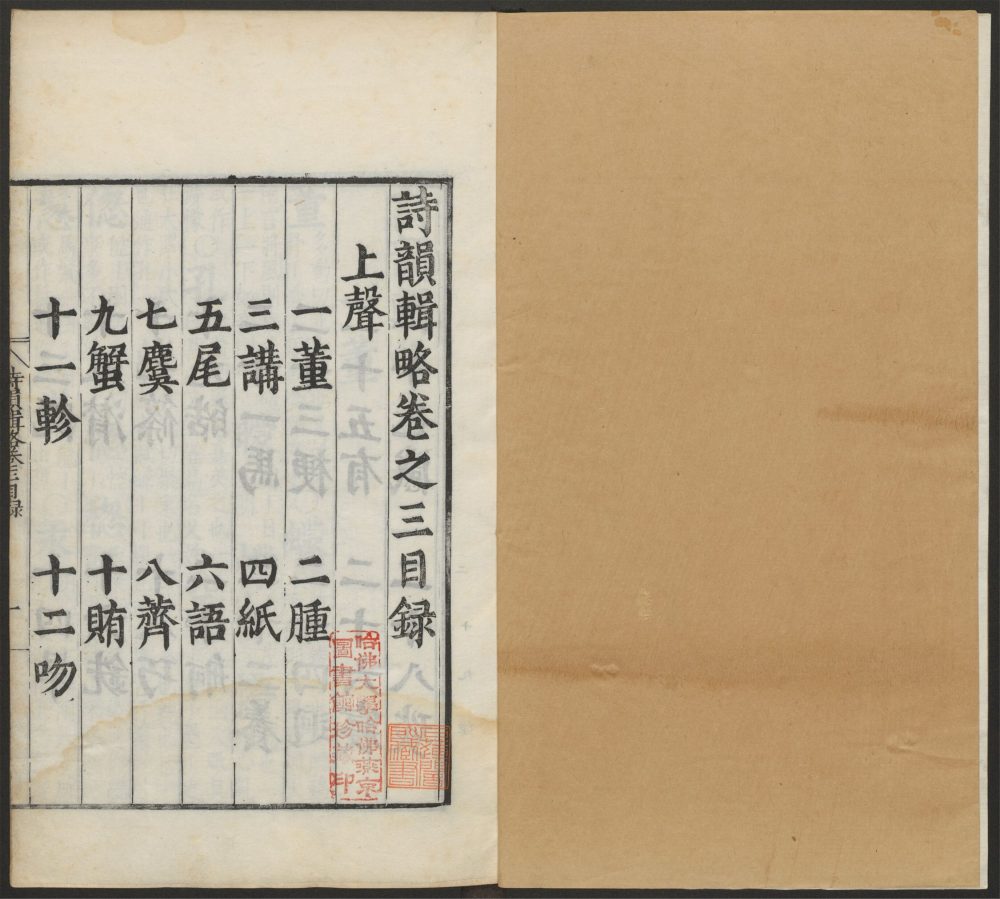 詩韻輯略卷之三目録
上聲
一董 二腫
三講 四紙
五尾 六語
七麌 八薺
九蟹 十賄
十一軫 十二吻
哈佛大學哈佛燕京
圖書館珍藏印